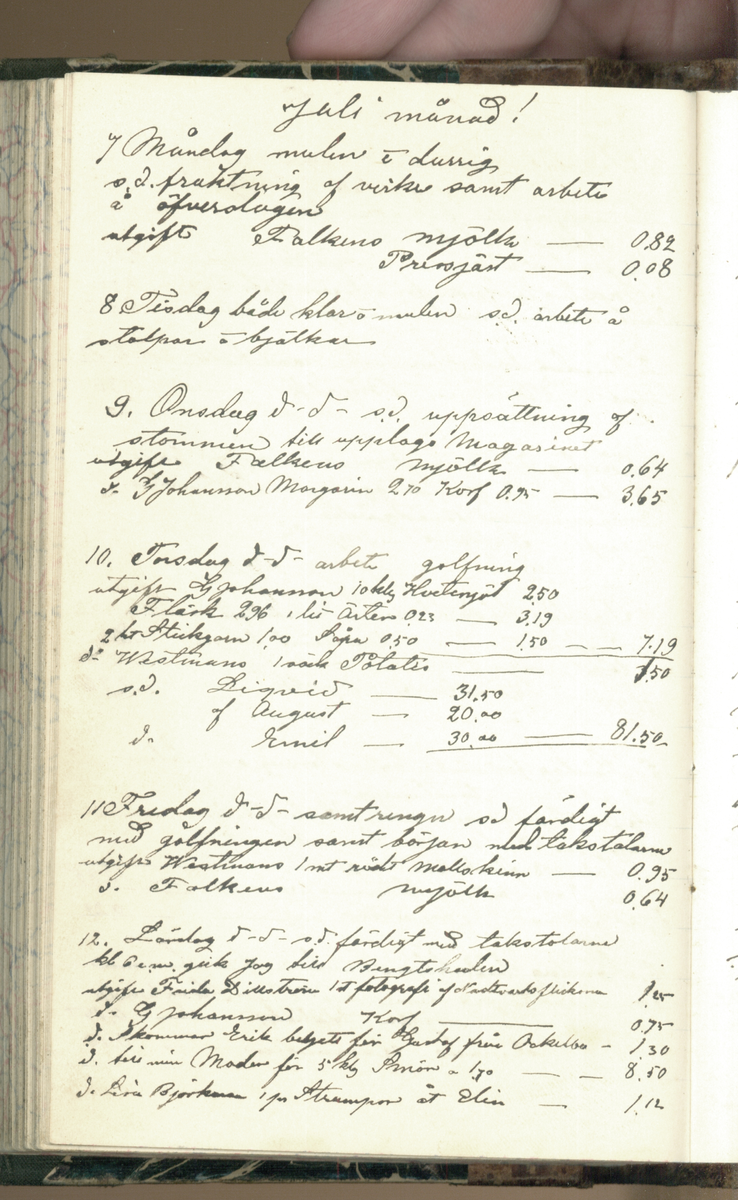 Juli månad!
7 Måndag mulen o durrig
s.d. fraktning af virke samt arbete
å öfverslagen
utgift Falkens mjölk — 0.82
Pressjäst — 0.08
8 Tisdag både klar o mulen s.d. arbete å
stolpar o bjälkar
9. Onsdag d-d- s.d. uppsättning af
stommen till upplags Magasinet
utgift Falkens mjölk — 0.64
d- G Johansson Margarin 2.70 Korf 0.95 — 3.65
10. Torsdag d-d- arbete golfning
utgift G Johansson 10 klg Hvetemjöl 2.50
Fläsk 2.96 1 lit Ärter 0.23 — 3.19
2 kt 1.00 Såpa 0.50 — 1.50 — — 7.19
d- Westmans 1 säck Potatis — 1.50
s.d. Liqvid — 31.50
af August — 20.00
d. Emil — 30.00 — 81.50
11 Fredag d-d- samt s.d färdigt
med golfningen samt början med takstolarne
utgift Westmans 1 mt rödt Mollskinn — 0.95
d. Falkens mjölk 0.64
12. Lördag d-d- s.d. färdigt med takstolarne
kl 6 e.m. gick Jag till
utgift Frida 1 st fotografi af flickorna 1.25
d- G Johansson Korf — 0.75
d. Erik betals för Gustaf från Ockelbo - 1.30
d. till min Moder för 5 klg Smör a 1.70 — — 8.50
d. Björkman 1 pr Strumpor åt Elin — 1.12